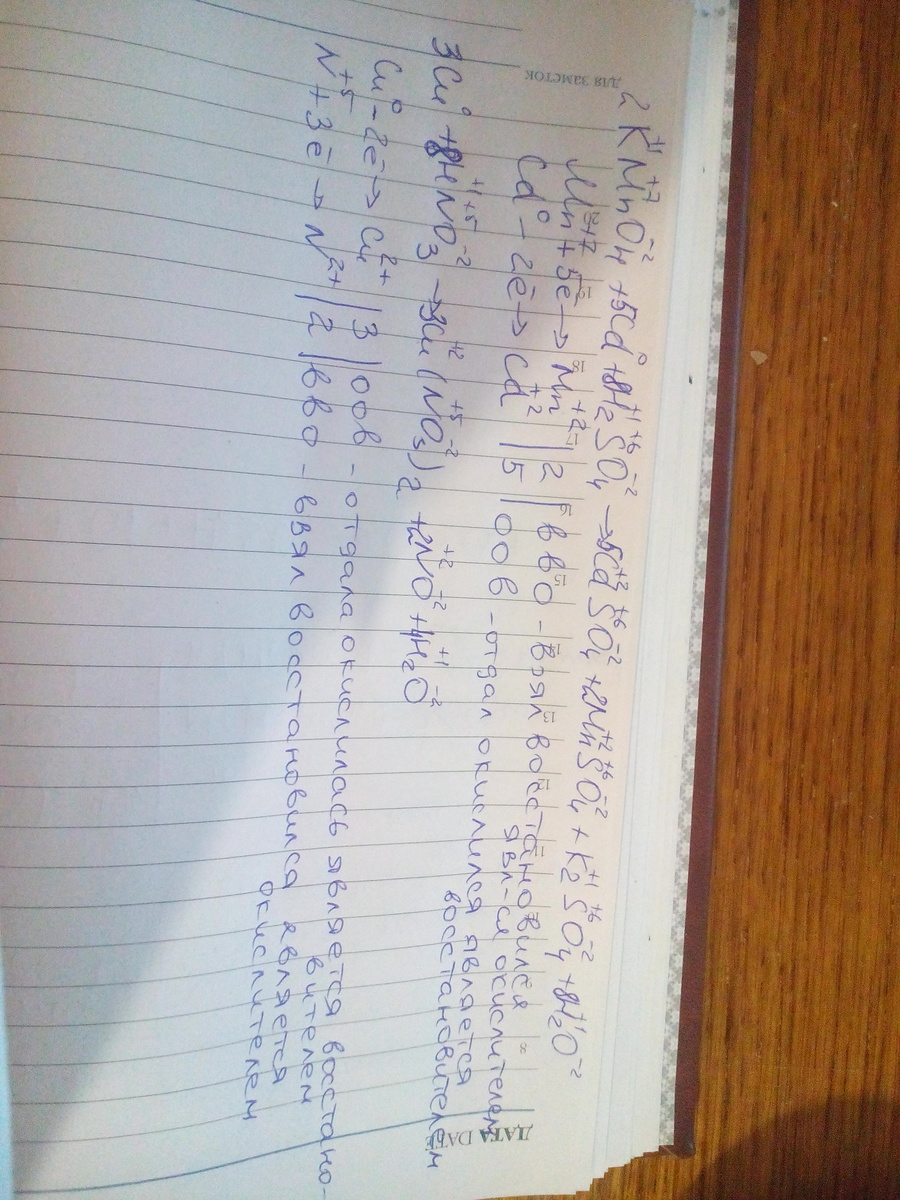 для заметок
2 K⁺¹Mn⁺⁷O₄⁻² + 5Cd⁰ + 8H₂⁺¹S⁺⁶O₄⁻² → 5Cd⁺²S⁺⁶O₄⁻² + 2Mn⁺²S⁺⁶O₄⁻² + K₂⁺¹S⁺⁶O₄⁻² + 8H₂⁺¹O⁻²
Mn⁺⁷ + 5ē → Mn⁺² | 2 | ВВО - взял восстановился
явл-ся окислителем
Cd⁰ - 2ē → Cd⁺² | 5 | ООВ - отдал окислился является
восстановителем
3Cu⁰ + 8H⁺¹N⁺⁵O₃⁻² → 3Cu⁺²(N⁺⁵O₃⁻²)₂ + 2N⁺²O⁻² + 4H₂⁺¹O⁻²
Cu⁰ - 2ē → Cu²⁺ | 3 | ООВ - отдала окислилась является восстано-
вителем
N⁺⁵ + 3ē → N²⁺ | 2 | ВВО - взял восстановился является
окислителем
20 19 18 17 16 15 14 13 12 11 8
ДАТА DATE